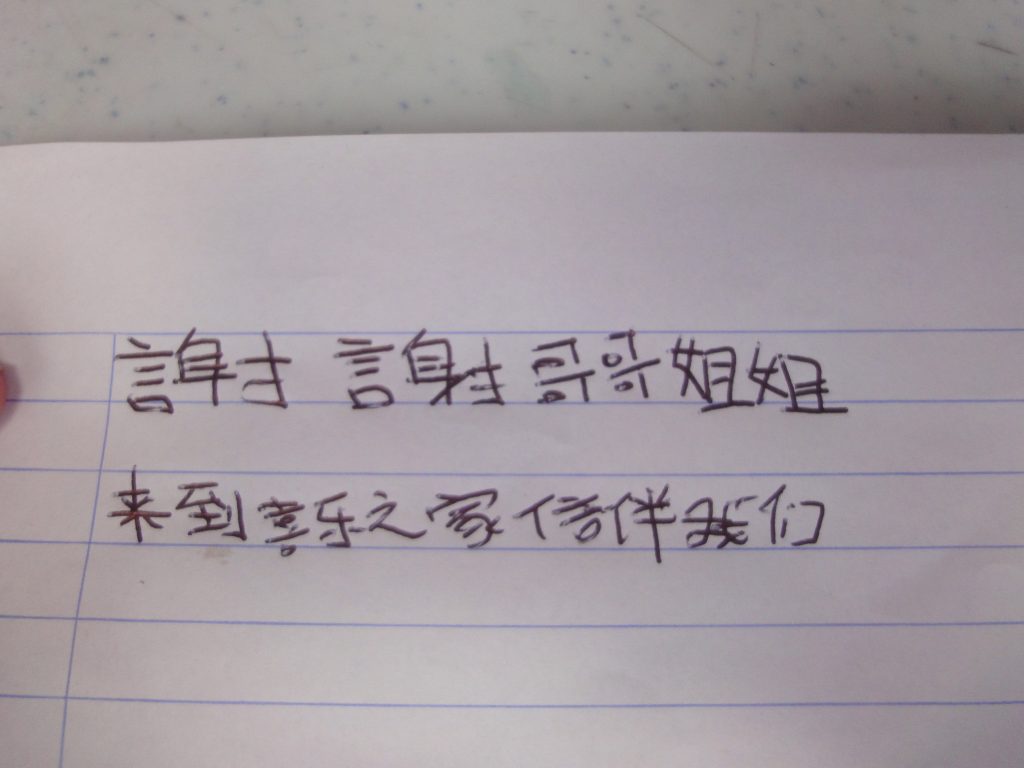 謝謝哥哥姐姐
来到喜乐之家倍伴我们